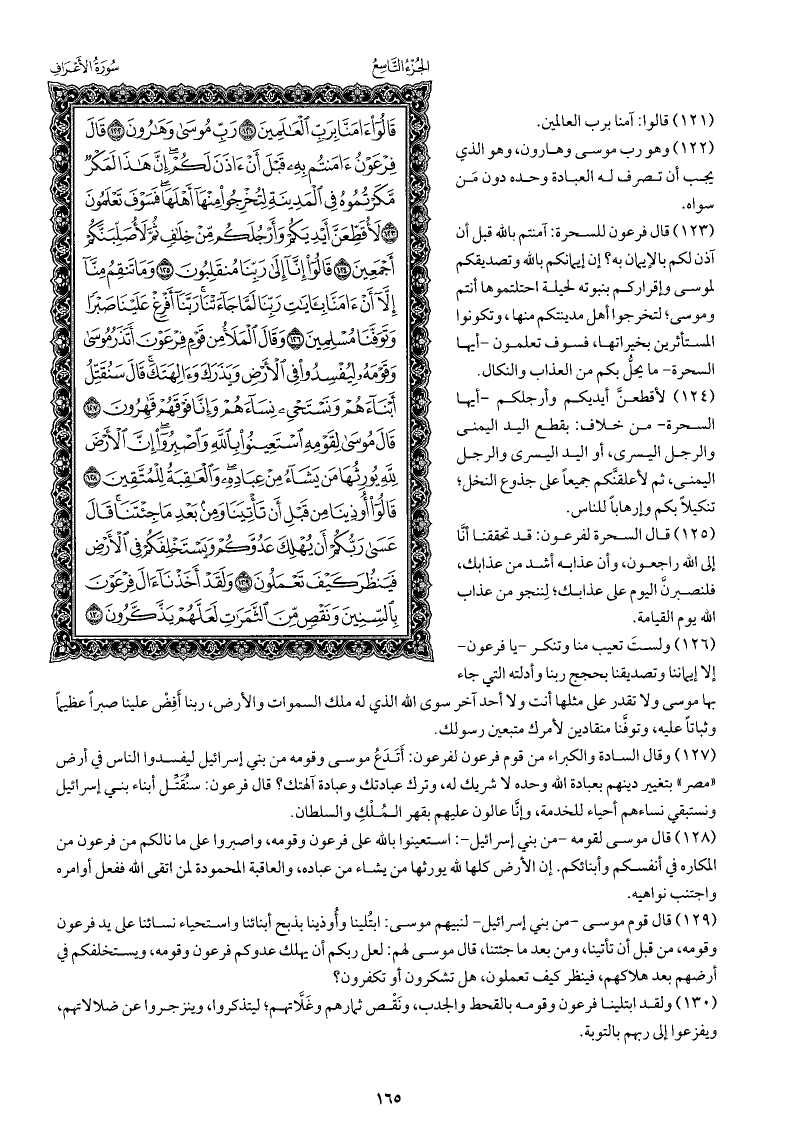 الجُزْءُ التَّاسِعُ
سُورَةُ الأَعْرَافِ
قَالُوٓاْ ءَامَنَّا بِرَبِّ ٱلْعَٰلَمِينَ ۝١٢١ رَبِّ مُوسَىٰ وَهَٰرُونَ ۝١٢٢ قَالَ
فِرْعَوْنُ ءَامَنتُم بِهِۦ قَبْلَ أَنْ ءَاذَنَ لَكُمْ ۖ إِنَّ هَٰذَا لَمَكْرٌ
مَّكَرْتُمُوهُ فِى ٱلْمَدِينَةِ لِتُخْرِجُواْ مِنْهَآ أَهْلَهَا ۖ فَسَوْفَ تَعْلَمُونَ
۝١٢٣ لَأُقَطِّعَنَّ أَيْدِيَكُمْ وَأَرْجُلَكُم مِّنْ خِلَٰفٍ ثُمَّ لَأُصَلِّبَنَّكُمْ
أَجْمَعِينَ ۝١٢٤ قَالُوٓاْ إِنَّآ إِلَىٰ رَبِّنَا مُنقَلِبُونَ ۝١٢٥ وَمَا تَنقِمُ مِنَّآ
إِلَّآ أَنْ ءَامَنَّا بِـَٔايَٰتِ رَبِّنَا لَمَّا جَآءَتْنَا ۚ رَبَّنَآ أَفْرِغْ عَلَيْنَا صَبْرًا
وَتَوَفَّنَا مُسْلِمِينَ ۝١٢٦ وَقَالَ ٱلْمَلَأُ مِن قَوْمِ فِرْعَوْنَ أَتَذَرُ مُوسَىٰ
وَقَوْمَهُۥ لِيُفْسِدُواْ فِى ٱلْأَرْضِ وَيَذَرَكَ وَءَالِهَتَكَ ۚ قَالَ سَنُقَتِّلُ
أَبْنَآءَهُمْ وَنَسْتَحْىِۦ نِسَآءَهُمْ وَإِنَّا فَوْقَهُمْ قَٰهِرُونَ ۝١٢٧
قَالَ مُوسَىٰ لِقَوْمِهِ ٱسْتَعِينُواْ بِٱللَّهِ وَٱصْبِرُوٓاْ ۖ إِنَّ ٱلْأَرْضَ
لِلَّهِ يُورِثُهَا مَن يَشَآءُ مِنْ عِبَادِهِۦ ۖ وَٱلْعَٰقِبَةُ لِلْمُتَّقِينَ ۝١٢٨
قَالُوٓاْ أُوذِينَا مِن قَبْلِ أَن تَأْتِيَنَا وَمِنۢ بَعْدِ مَا جِئْتَنَا ۚ قَالَ
عَسَىٰ رَبُّكُمْ أَن يُهْلِكَ عَدُوَّكُمْ وَيَسْتَخْلِفَكُمْ فِى ٱلْأَرْضِ
فَيَنظُرَ كَيْفَ تَعْمَلُونَ ۝١٢٩ وَلَقَدْ أَخَذْنَآ ءَالَ فِرْعَوْنَ
بِٱلسِّنِينَ وَنَقْصٍ مِّنَ ٱلثَّمَرَٰتِ لَعَلَّهُمْ يَذَّكَّرُونَ ۝١٣٠
(١٢١) قالوا: آمنا برب العالمين.
(١٢٢) وهو رب موسى وهارون، وهو الذي
يجب أن تصرف له العبادة وحده دون مَن
سواه.
(١٢٣) قال فرعون للسحرة: آمنتم بالله قبل أن
آذن لكم بالإيمان به؟ إن إيمانكم بالله وتصديقكم
لموسى وإقراركم بنبوته لحيلة احتلتموها أنتم
وموسى؛ لتخرجوا أهل مدينتكم منها، وتكونوا
المستأثرين بخيراتها، فسوف تعلمون -أيها
السحرة- ما يحلُّ بكم من العذاب والنكال.
(١٢٤) لأقطعنَّ أيديكم وأرجلكم -أيها
السحرة- من خلاف: بقطع اليد اليمنى
والرجل اليسرى، أو اليد اليسرى والرجل
اليمنى، ثم لأعلقنَّكم جميعاً على جذوع النخل؛
تنكيلاً بكم وإرهاباً للناس.
(١٢٥) قال السحرة لفرعون: قد تحققنا أنَّا
إلى الله راجعون، وأن عذابه أشد من عذابك،
فلنصبرنَّ اليوم على عذابك؛ لِننجو من عذاب
الله يوم القيامة.
(١٢٦) ولستَ تعيب منا وتنكر -يا فرعون-
إلا إيماننا وتصديقنا بحجج ربنا وأدلته التي جاء
بها موسى ولا تقدر على مثلها أنت ولا أحد آخر سوى الله الذي له ملك السموات والأرض، ربنا أَفِضْ علينا صبراً عظيماً
وثباتاً عليه، وتوفَّنا منقادين لأمرك متبعين رسولك.
(١٢٧) وقال السادة والكبراء من قوم فرعون لفرعون: أَتَدَعُ موسى وقومه من بني إسرائيل ليفسدوا الناس في أرض
«مصر» بتغيير دينهم بعبادة الله وحده لا شريك له، وترك عبادتك وعبادة آلهتك؟ قال فرعون: سنُقَتِّل أبناء بني إسرائيل
ونستبقي نساءهم أحياء للخدمة، وإنَّا عالون عليهم بقهر المُلْكِ والسلطان.
(١٢٨) قال موسى لقومه -من بني إسرائيل-: استعينوا بالله على فرعون وقومه، واصبروا على ما نالكم من فرعون من
المكاره في أنفسكم وأبنائكم. إن الأرض كلها لله يورثها من يشاء من عباده، والعاقبة المحمودة لمن اتقى الله ففعل أوامره
واجتنب نواهيه.
(١٢٩) قال قوم موسى -من بني إسرائيل- لنبيهم موسى: ابتُلينا وأُوذينا بذبح أبنائنا واستحياء نسائنا على يد فرعون
وقومه، من قبل أن تأتينا، ومن بعد ما جئتنا، قال موسى لهم: لعل ربكم أن يهلك عدوكم فرعون وقومه، ويستخلفكم في
أرضهم بعد هلاكهم، فينظر كيف تعملون، هل تشكرون أو تكفرون؟
(١٣٠) ولقد ابتلينا فرعون وقومه بالقحط والجدب، ونَقْص ثمارهم وغَلَّاتهم؛ ليتذكروا، وينزجروا عن ضلالاتهم،
ويفزعوا إلى ربهم بالتوبة.
١٦٥